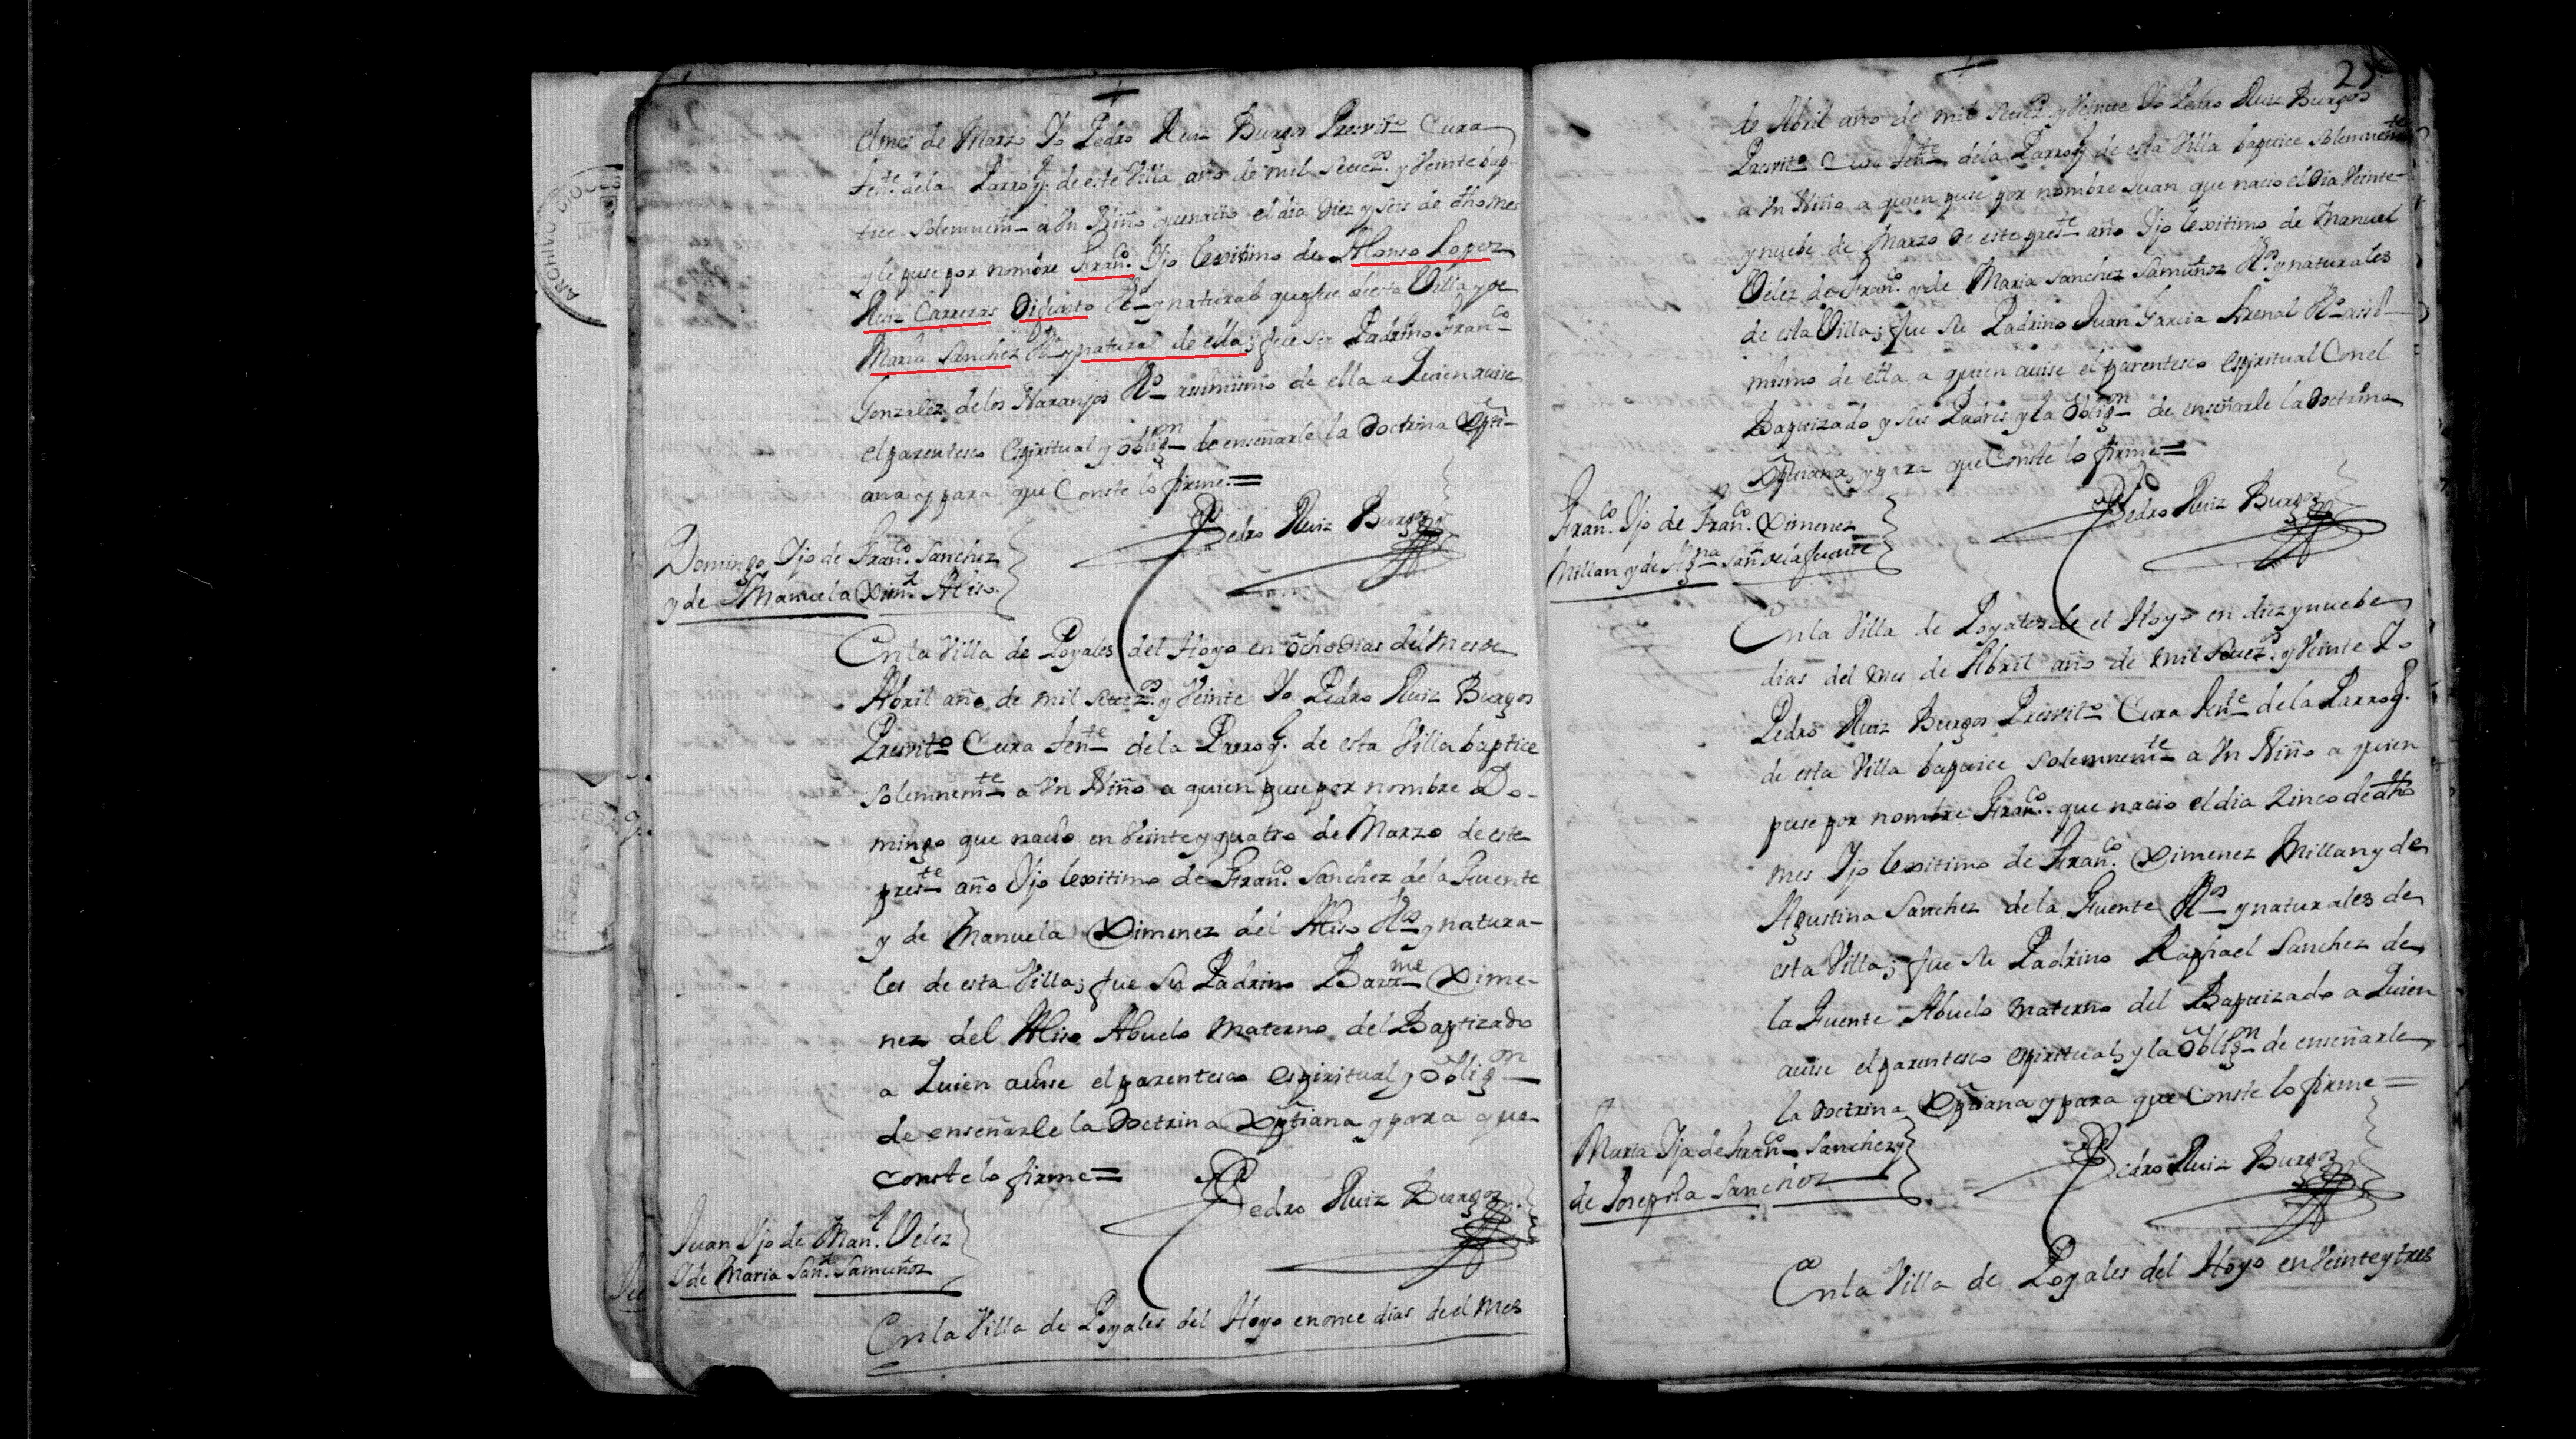 el mes de Marzo Yo Pedro Ruiz Burgos Presvito Cura
tente de la Parroq. de este Villa año de mil Setezos y Veinte bap-
tice solemnemte a Vn Niño que nacio el dia Diez y seis de dho mes
y le puse por nombre Franco. Yjo lexitimo de Alonso Lopez
Ruiz Carreras Difunto Vo y natural que fue de esta Villa y de
Maria Sanchez Va y natural de ella; fue su Padrino Franco
Gonzalez de los Naranjos Vo asimismo de ella a Quien avise
el parentesco Espiritual y obligon de enseñarle la Doctrina Xpti-
ana y para que Conste lo firme=
Pedro Ruiz Burgos
Domingo Yjo de Franco. Sanchez
y de Manuela Ximz. Aliso.
En la Villa de Poyales del Hoyo en ocho Dias del Mes de
Abril año de mil setezos. y Veinte Yo Pedro Ruiz Burgos
Presvito Cura tente de la Parroq. de esta Villa baptice
solemnemte a Vn Niño a quien puse por nombre Do-
mingo que nacio en Veinte y quatro de Marzo de este
preste año Yjo lexitimo de Franco. Sanchez de la Fuente
y de Manuela Ximenez del Aliso Vos y natura-
les de esta Villa; fue su Padrino Barme Xime-
nez del Aliso Abuelo Materno del Baptizado
a Quien avise el parentesco espiritual y obligon
de enseñarle la Doctrina Xptiana y para que
conste lo firme=
Pedro Ruiz Burgos
Juan Yjo de Manl. Velez
Y de Maria Sanz. Samuñoz
En la Villa de Poyales del Hoyo en once dias de el Mes
25
de Abril año de mil Setezos y Veinte Yo Pedro Ruiz Burgos
Presvito Cura tente de la Parroq de esta Villa baptice Solemnemte
a Vn Niño a quien puse por nombre Juan que nacio el Dia Veinte
y nuebe de Marzo de este preste año Yjo lexitimo de Manuel
Velez de Franco. y de Maria Sanchez Samuñoz Vos y naturales
de esta Villa; fue su Padrino Juan Garcia Arenal Vo assi
mismo de ella a quien avise el parentesco Espiritual Con el
Baptizado y sus Padres y la obligon de enseñarle la Doctrina
Xptiana, y para que Conste lo firme=
Pedro Ruiz Burgos
Franco. Yjo de Franco. Ximenez
Millan y de Agna Sanz de la fuente
En la Villa de Poyales de el Hoyo en diez y nuebe
dias del mes de Abril año de mil Setezos. y Veinte Yo
Pedro Ruiz Burgos Presvito Cura tente de la Parroq.
de esta Villa baptice solemnemte a Vn Niño a quien
puse por nombre Franco. que nacio el dia Zinco de dho
mes Yjo lexitimo de Franco. Ximenez Millan y de
Agustina Sanchez de la Fuente Vos y naturales de
esta Villa; fue su Padrino Raphael Sanchez de
la Fuente Abuelo materno del Baptizado a Quien
avise el parentesco espiritual, y la obligon de enseñarle
la Doctrina Xptiana y para que Conste lo firme=
Pedro Ruiz Burgos
Maria Yja de Franco Sanchez y
de Josepha Sanchez
En la Villa de Poyales del Hoyo en Veinte y tres